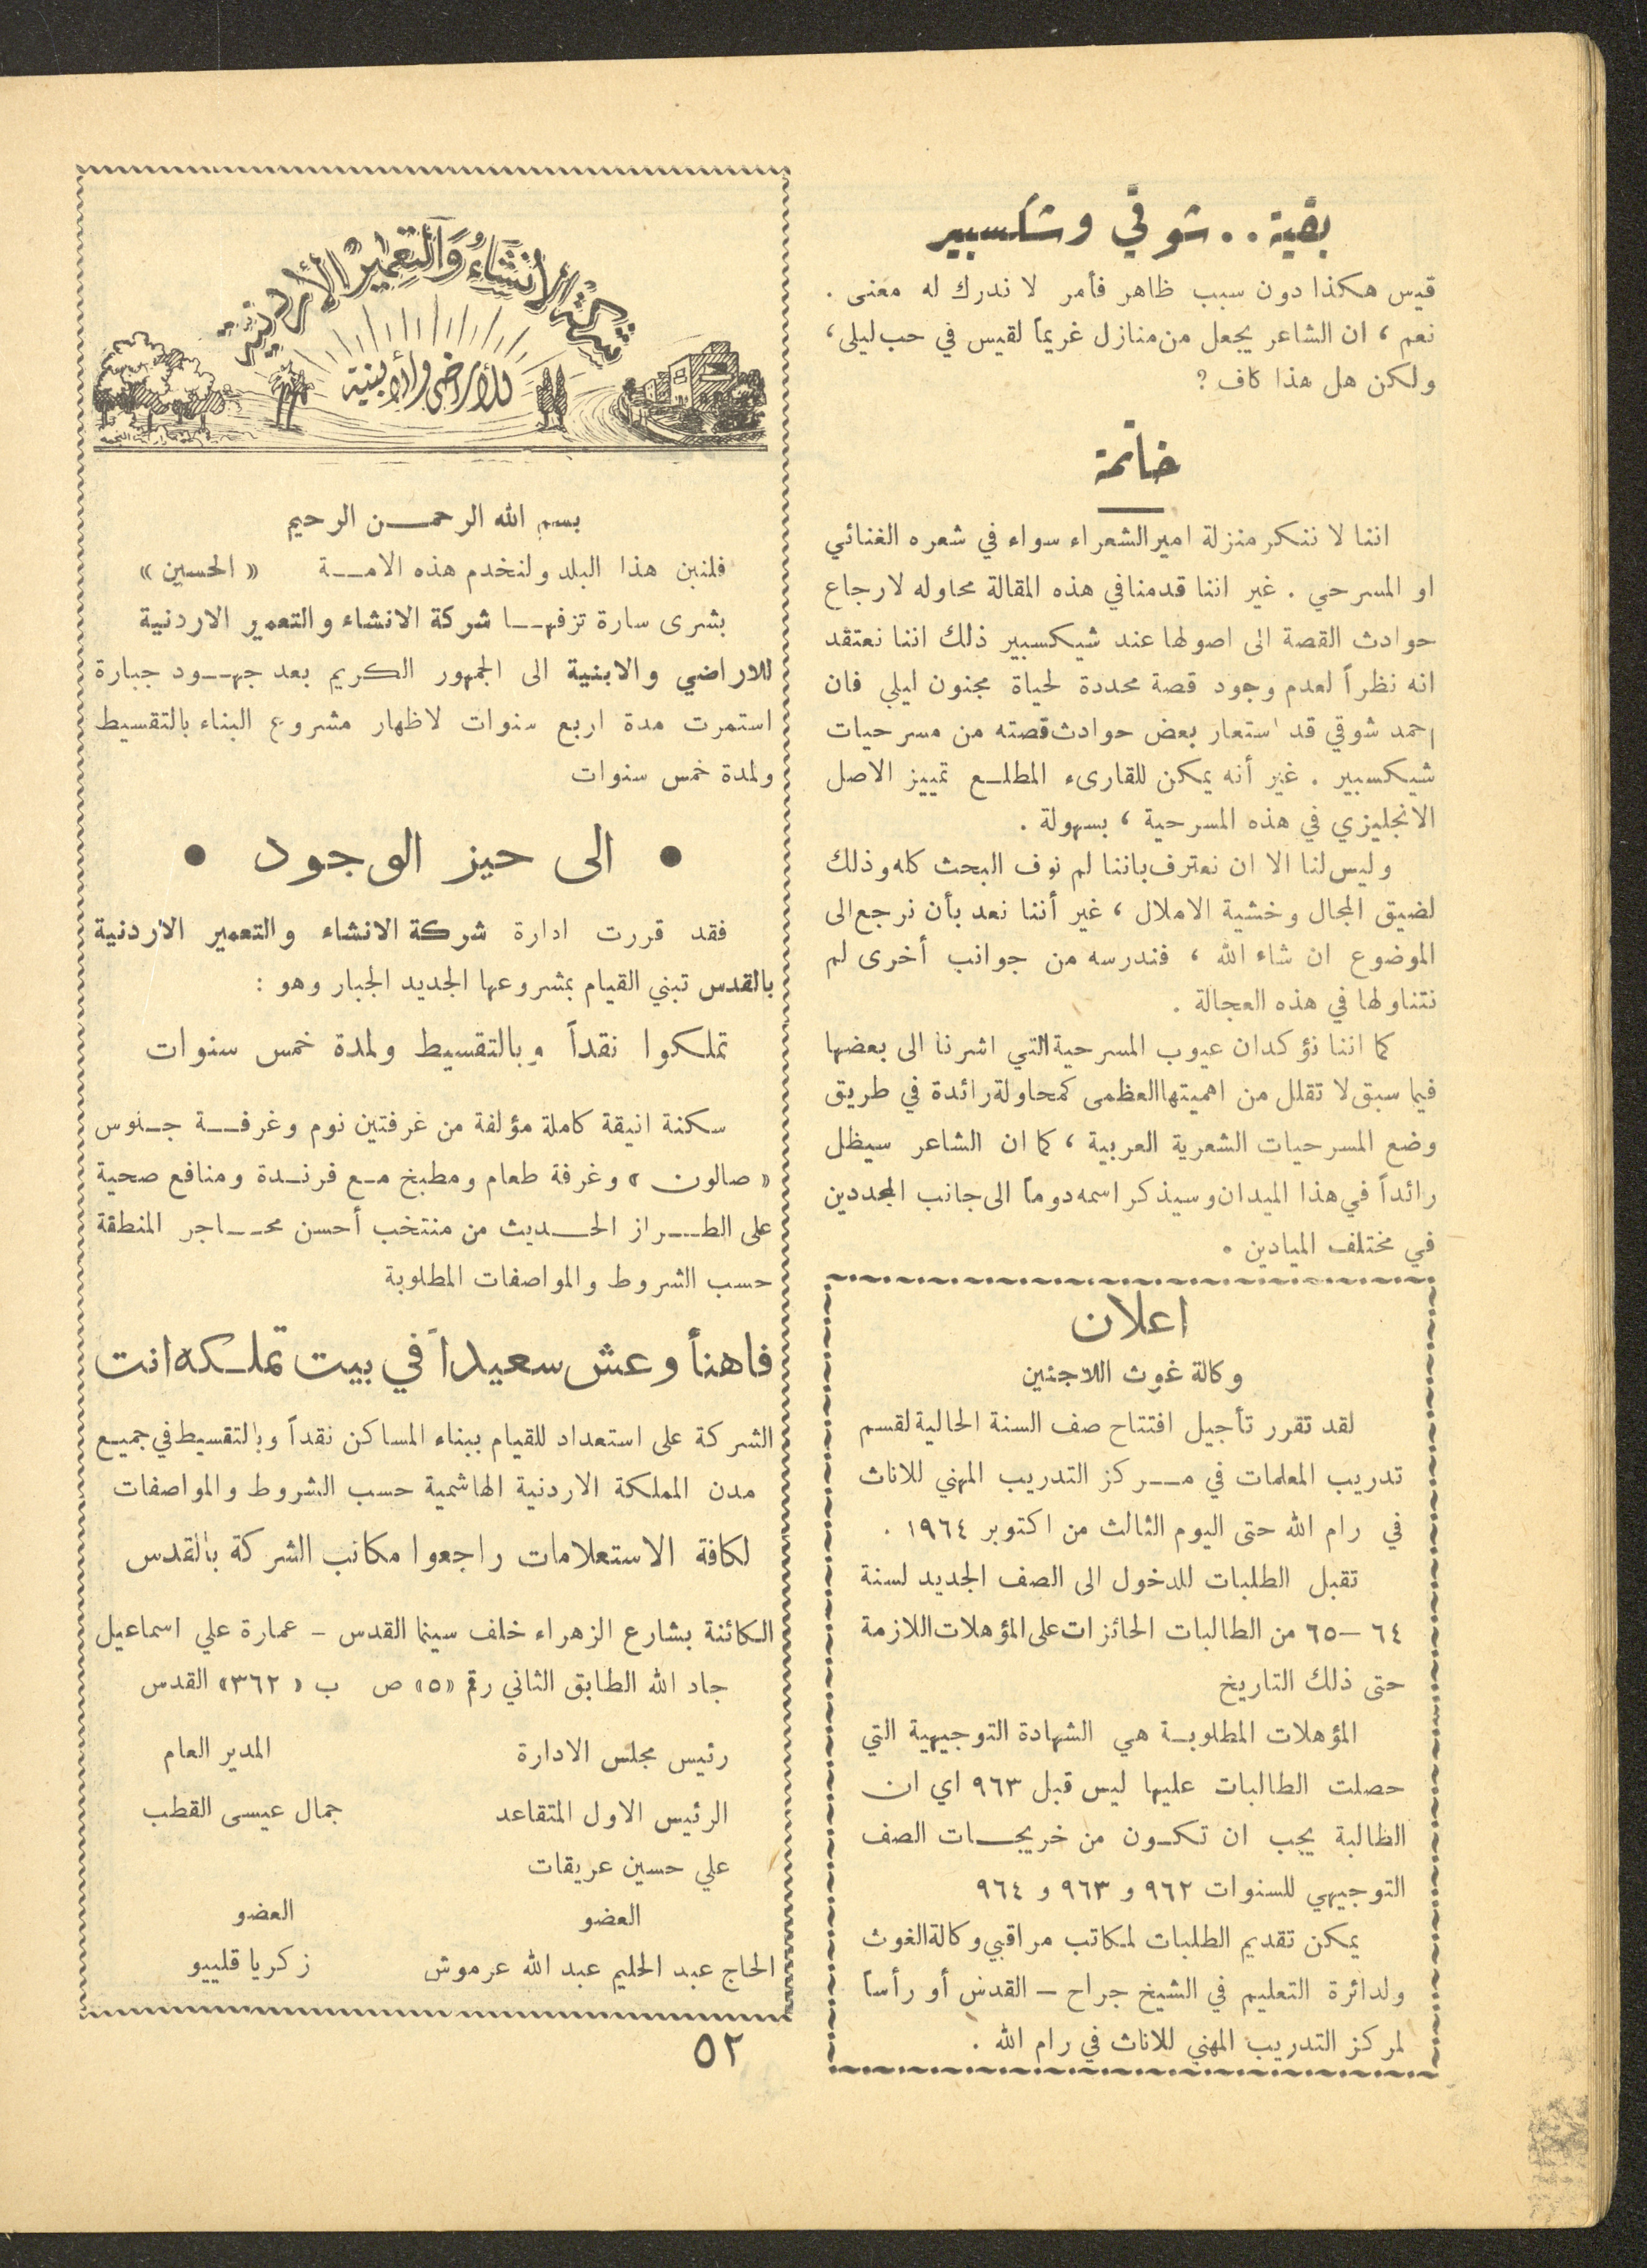 بقية . . شوقي وشكسبير
قيس هكذا دون سبب ظاهر فأمر لا ندرك له معنى .
نعم ، ان الشاعر يجعل من منازل غريماً لقيس في حب ليلى ،
ولكن هل هذا كاف ؟
خاتمة
اننا لا ننكر منزلة امير الشعراء سواء في شعره الغنائي
او المسرحي . غير اننا قدمنا في هذه المقالة محاوله لارجاع
حوادث القصة الى اصولها عند شيكسبير ذلك اننا نعتقد
انه نظراً لعدم وجود قصة محددة لحياة مجنون ليلي فان
احمد شوقي قد استعار بعض حوادث قصته من مسرحيات
شيكسبير . غير أنه يمكن للقارىء المطلع تمييز الاصل
الانجليزي في هذه المسرحية ، بسهولة .
وليس لنا الا ان نعترف باننا لم نوف البحث كله وذلك
لضيق المجال وخشية الاملال ، غير أننا نعد بأن نرجع الى
الموضوع ان شاء الله ، فندرسه من جوانب أخرى لم
نتناولها في هذه العجالة .
كما اننا نؤكد ان عيوب المسرحية التي اشرنا الى بعضها
فيما سبق لا تقلل من اهميتها العظمى كمحاولة رائدة في طريق
وضع المسرحيات الشعرية العربية ، كما ان الشاعر سيظل
رائداً في هذا الميدان وسيذكر اسمه دوماً الى جانب المجددين
في مختلف الميادين .
اعلان
وكالة غوث اللاجئين
لقد تقرر تأجيل افتتاح صف السنة الحالية لقسم
تدريب المعلمات في مركز التدريب المهني للاناث
في رام الله حتى اليوم الثالث من اكتوبر ١٩٦٤ .
تقبل الطلبات للدخول الى الصف الجديد لسنة
٦٤ – ٦٥ من الطالبات الحائزات على المؤهلات اللازمة
حتى ذلك التاريخ
المؤهلات المطلوبة هي الشهادة التوجيهية التي
حصلت الطالبات عليها ليس قبل ٩٦٣ اي ان
الطالبة يجب ان تكون من خريجات الصف
التوجيهي للسنوات ٩٦٢ و ٩٦٣ و ٩٦٤
يمكن تقديم الطلبات لمكاتب مراقبي وكالة الغوث
ولدائرة التعليم في الشيخ جراح – القدس أو رأساً
لمركز التدريب المهني للاناث في رام الله .
شركة الأنشاء والتعمير الأردنية
للأراضي والأبنية
بسم الله الرحمن الرحيم
فلنبن هذا البلد ولنخدم هذه الامة « الحسين »
بشرى سارة تزفها شركة الانشاء والتعمير الاردنية
للاراضي والابنية الى الجمهور الكريم بعد جهود جبارة
استمرت مدة اربع سنوات لاظهار مشروع البناء بالتقسيط
ولمدة خمس سنوات
• الى حيز الوجود •
فقد قررت ادارة شركة الانشاء والتعمير الاردنية
بالقدس تبني القيام بمشروعها الجديد الجبار وهو :
تملكوا نقداً وبالتقسيط ولمدة خمس سنوات
سكنة انيقة كاملة مؤلفة من غرفتين نوم وغرفة جلوس
« صالون » وغرفة طعام ومطبخ مع فرندة ومنافع صحية
على الطراز الحديث من منتخب أحسن محاجر المنطقة
حسب الشروط والمواصفات المطلوبة
فاهنأ وعش سعيداً في بيت تملكه انت
الشركة على استعداد للقيام ببناء المساكن نقداً وبالتقسيط في جميع
مدن المملكة الاردنية الهاشمية حسب الشروط والمواصفات
لكافة الاستعلامات راجعوا مكاتب الشركة بالقدس
الكائنة بشارع الزهراء خلف سينما القدس – عمارة علي اسماعيل
جاد الله الطابق الثاني رقم «٥» ص ب « ٣٦٢» القدس
رئيس مجلس الادارة المدير العام
الرئيس الاول المتقاعد جمال عيسى القطب
علي حسين عريقات
العضو العضو
الحاج عبد الحليم عبد الله عرموش زكريا قليبو
٥٢